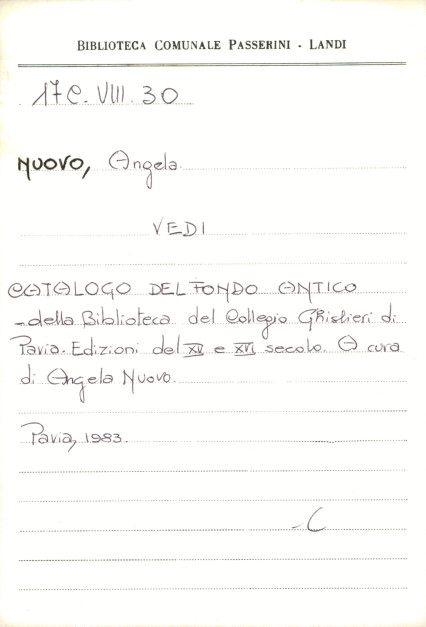 BIBLIOTECA COMUNALE PASSERINI - LANDI
17C. VIII. 30
NUOVO, Angela
VEDI
CATALOGO DEL FONDO ANTICO
della Biblioteca del Collegio Ghislieri di
Pavia. Edizioni del XV e XVI secolo. A cura
di Angela Nuovo.
Pavia, 1983.
-C